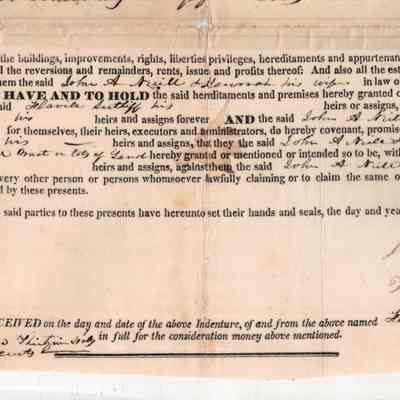 the buildings, improvements, rights, liberties, privileges, hereditaments and appurtenan
the reversions and remainders, rents, issues and profits thereof: And also all the est
them the said John A Neill & his wife in law o
HAVE AND TO HOLD the said hereditaments and premises hereby granted o
said his heirs or assigns,
his heirs and assigns forever AND the said John A Neil
for themselves, their heirs, executors and administrators, do hereby covenant, promise
his heirs and assigns, that they the said John A Neill &
or lots of Land hereby granted or mentioned or intended so to be, with
heirs and assigns, against them the said John A Neill
very other person or persons whomsoever lawfully claiming or to claim the same o
d by these presents.
said parties to these presents have hereunto set their hands and seals, the day and yea
CEIVED on the day and date of the above Indenture, of and from the above named
in full for the consideration money above mentioned.